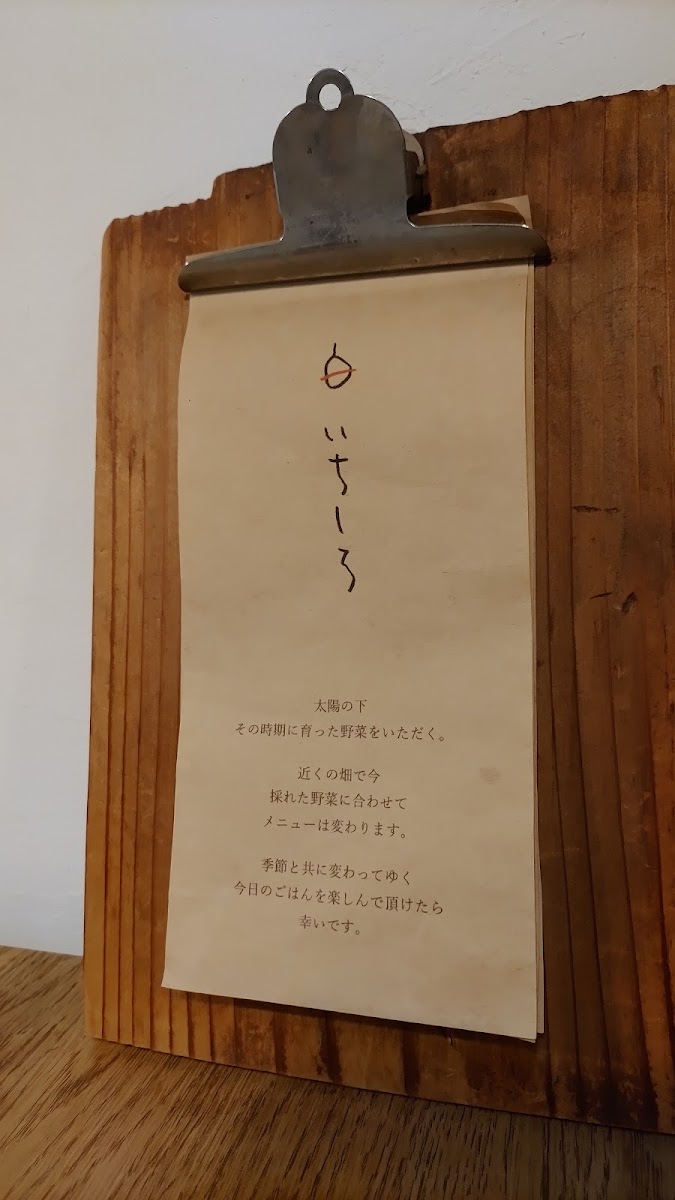 いちしろ
太陽の下
その時期に育った野菜をいただく。
近くの畑で今
採れた野菜に合わせて
メニューは変わります。
季節と共に変わってゆく
今日のごはんを楽しんで頂けたら
幸いです。